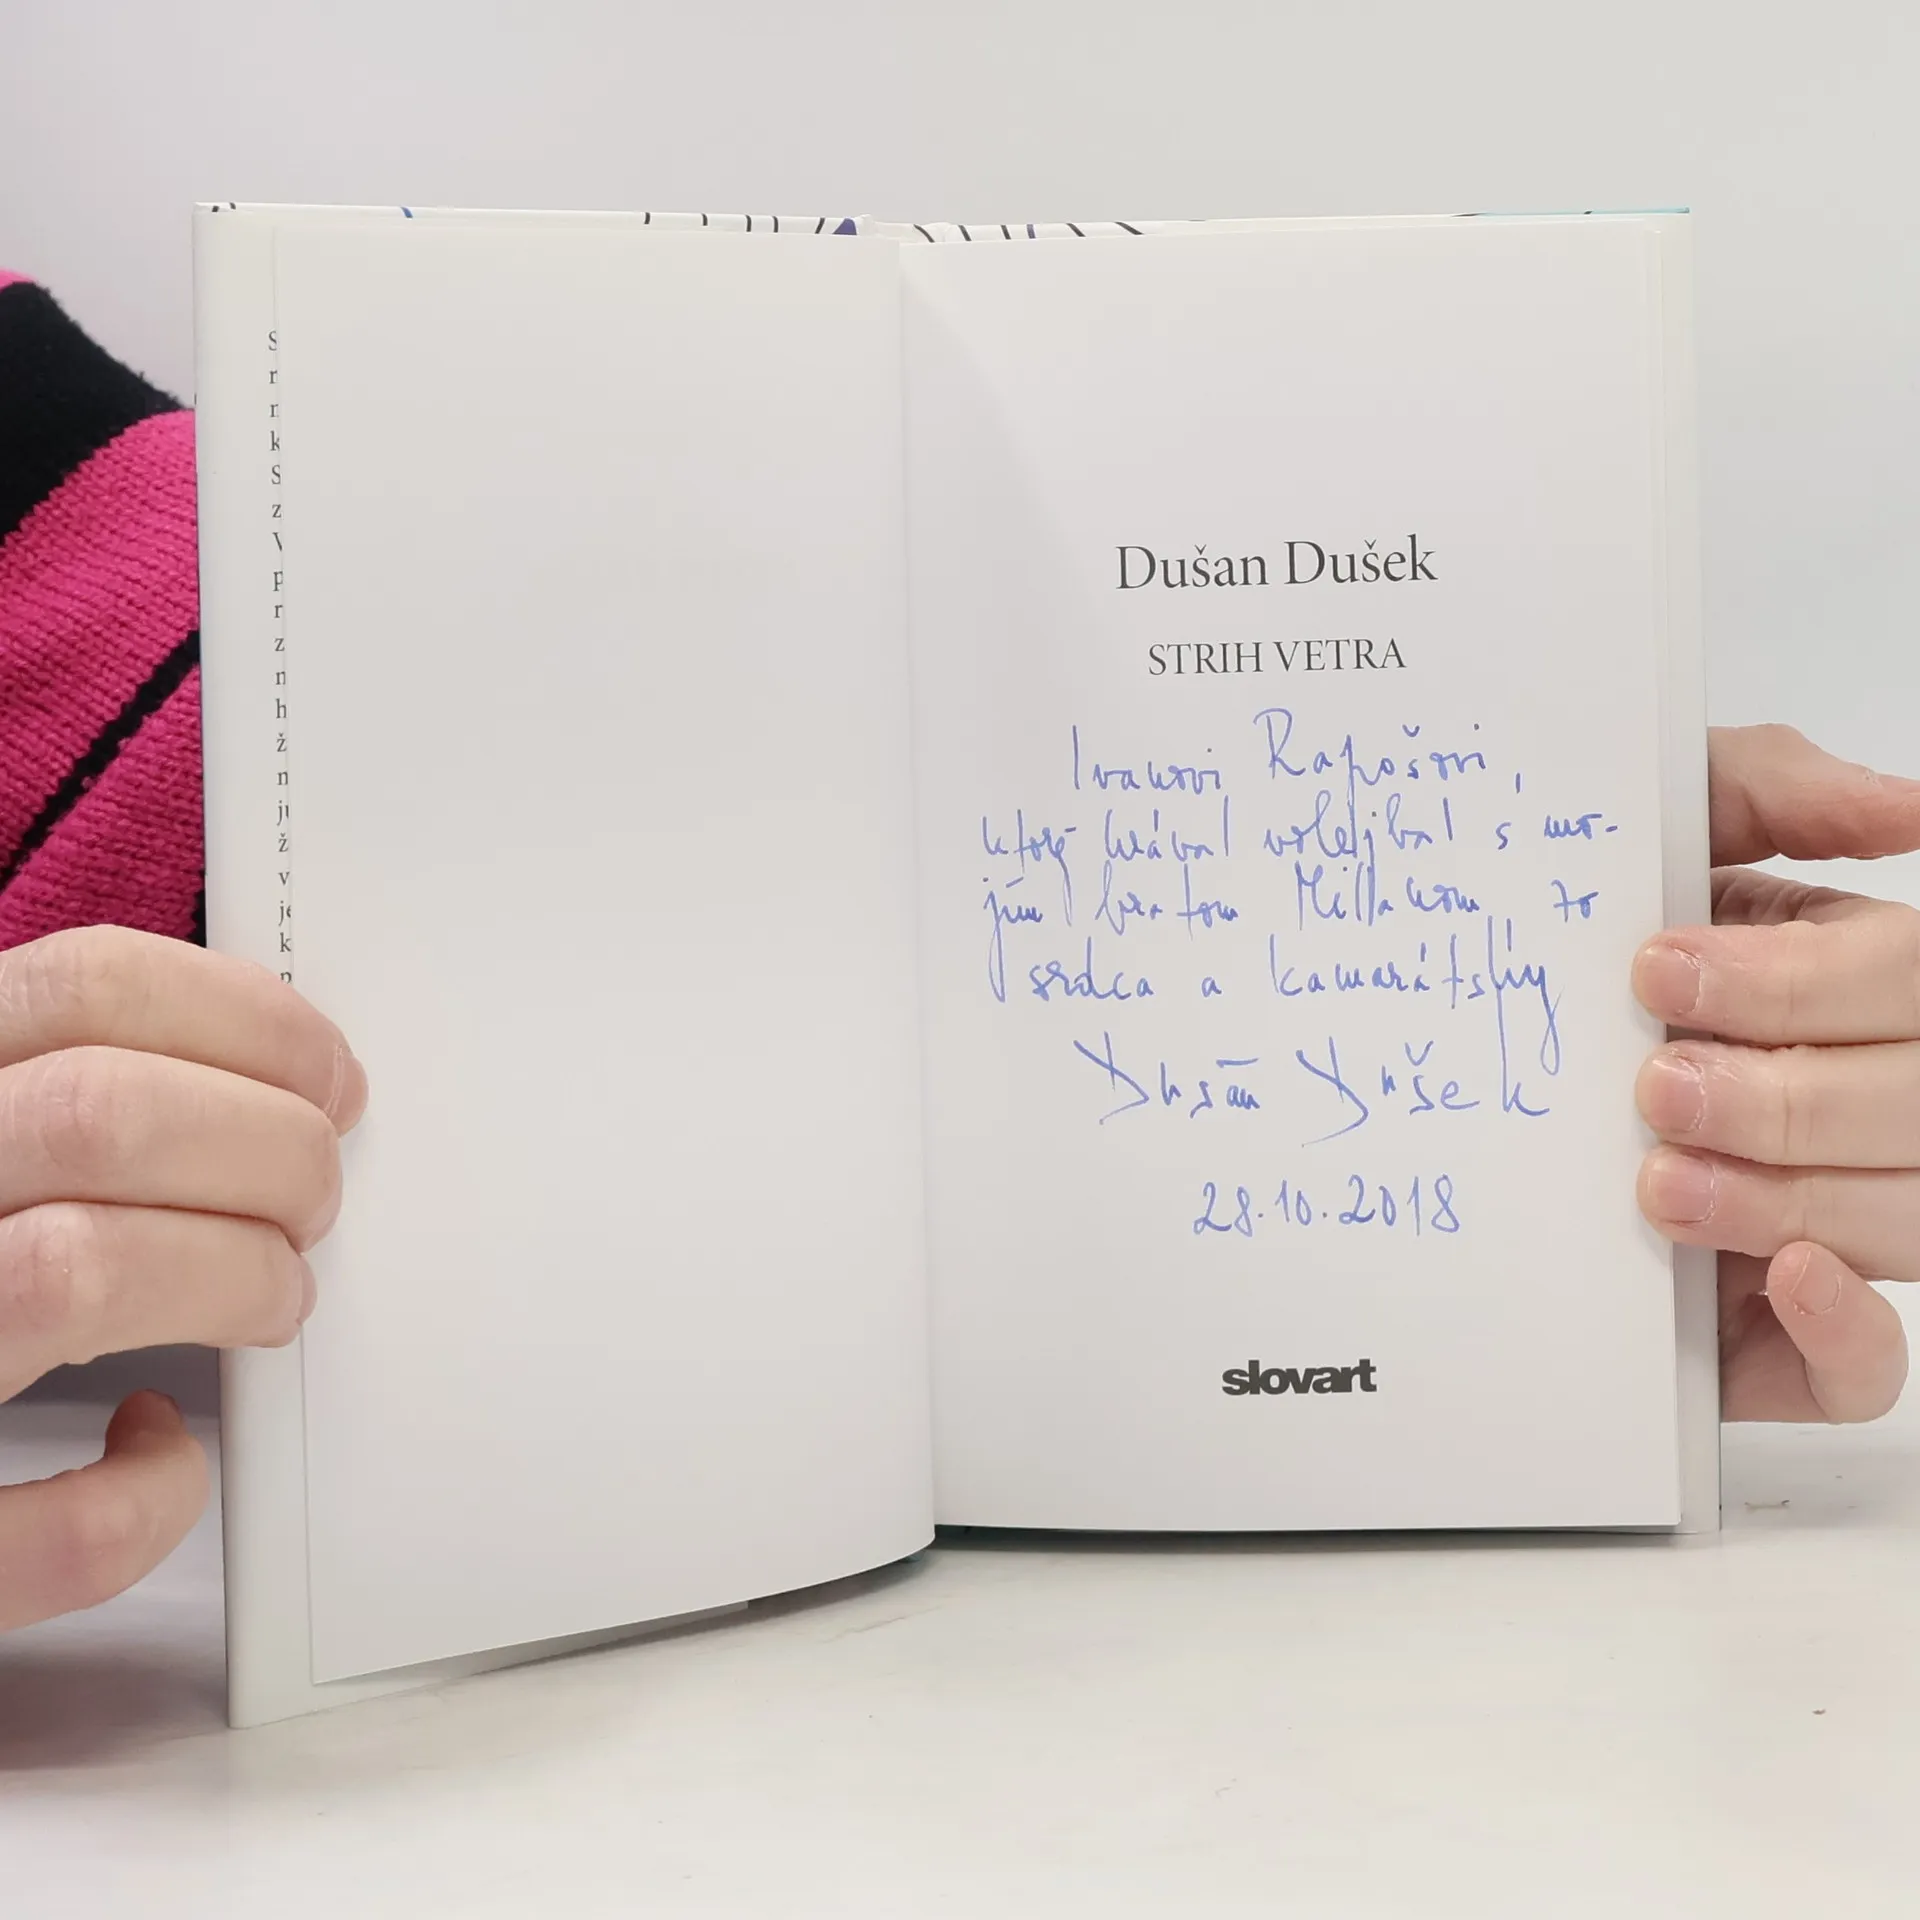 S
r
r
k
S
z
V
p
r
z
n
h
ž
n
ju
ž
v
je
k
p
Dušan Dušek
STRIH VETRA
Ivanovi Rapošovi,
ktorý hrával volejbal s mo-
jím bratom Milanom, zo
srdca a kamarátsky
Dušan Dušek
28.10.2018
slovart